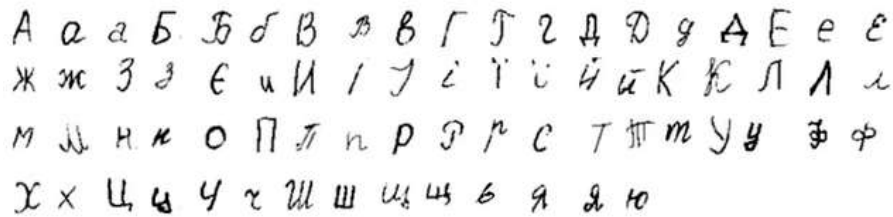 А а а Б Б б В в в Г Г г Д Д д Д Е е Е
Ж ж З з Є и И І І і Ї ї Й й К К Л Л л
м м н н о П П п Р Р р с Т Т т У у Ф ф
Х х Ц ц Ч ч Ш ш щ щ ь я я ю